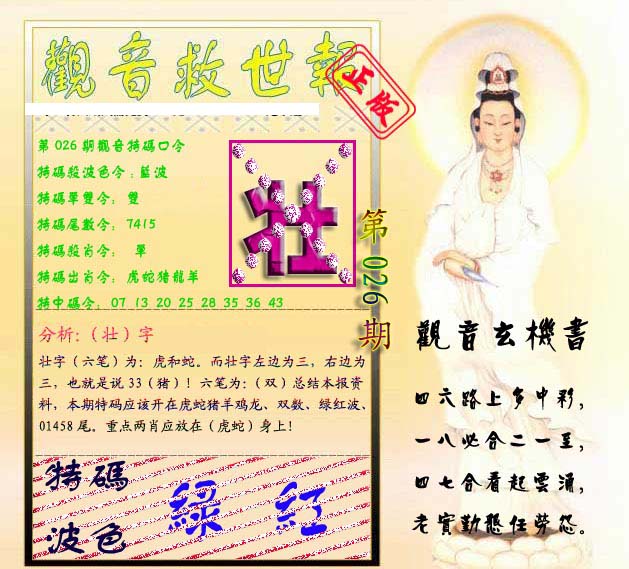 觀音救世報
正版
第026期觀音特碼口令
特碼殺波色令:藍波
特碼單雙令: 雙
特碼尾數令: 7415
特碼殺肖令: 單
特碼出肖令: 虎蛇猪龍羊
特中碼令: 07 13 20 25 28 35 36 43
壮
第026期
分析:(壮)字
壮字(六笔)为:虎和蛇。而壮字左边为三,右边为
三,也就是说33(猪)!六笔为:(双)总结本报资
料,本期特码应该开在虎蛇猪羊鸡龙、双数、绿红波、
01458尾。重点两肖应放在(虎蛇)身上!
特碼
波色
綠 紅
觀音玄機書
四六路上多中彩,
一八必合二一至,
四七合看起雲涌,
老實勤懇任勞怨。